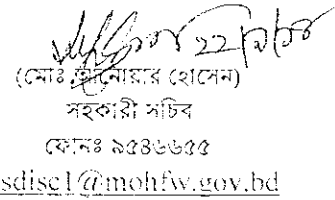 ২২/৯/১৫
(মোঃ আনোয়ার হোসেন)
সহকারী সচিব
ফোনঃ ৯৫৪৬৬৫৫
sdisc1@mohfw.gov.bd